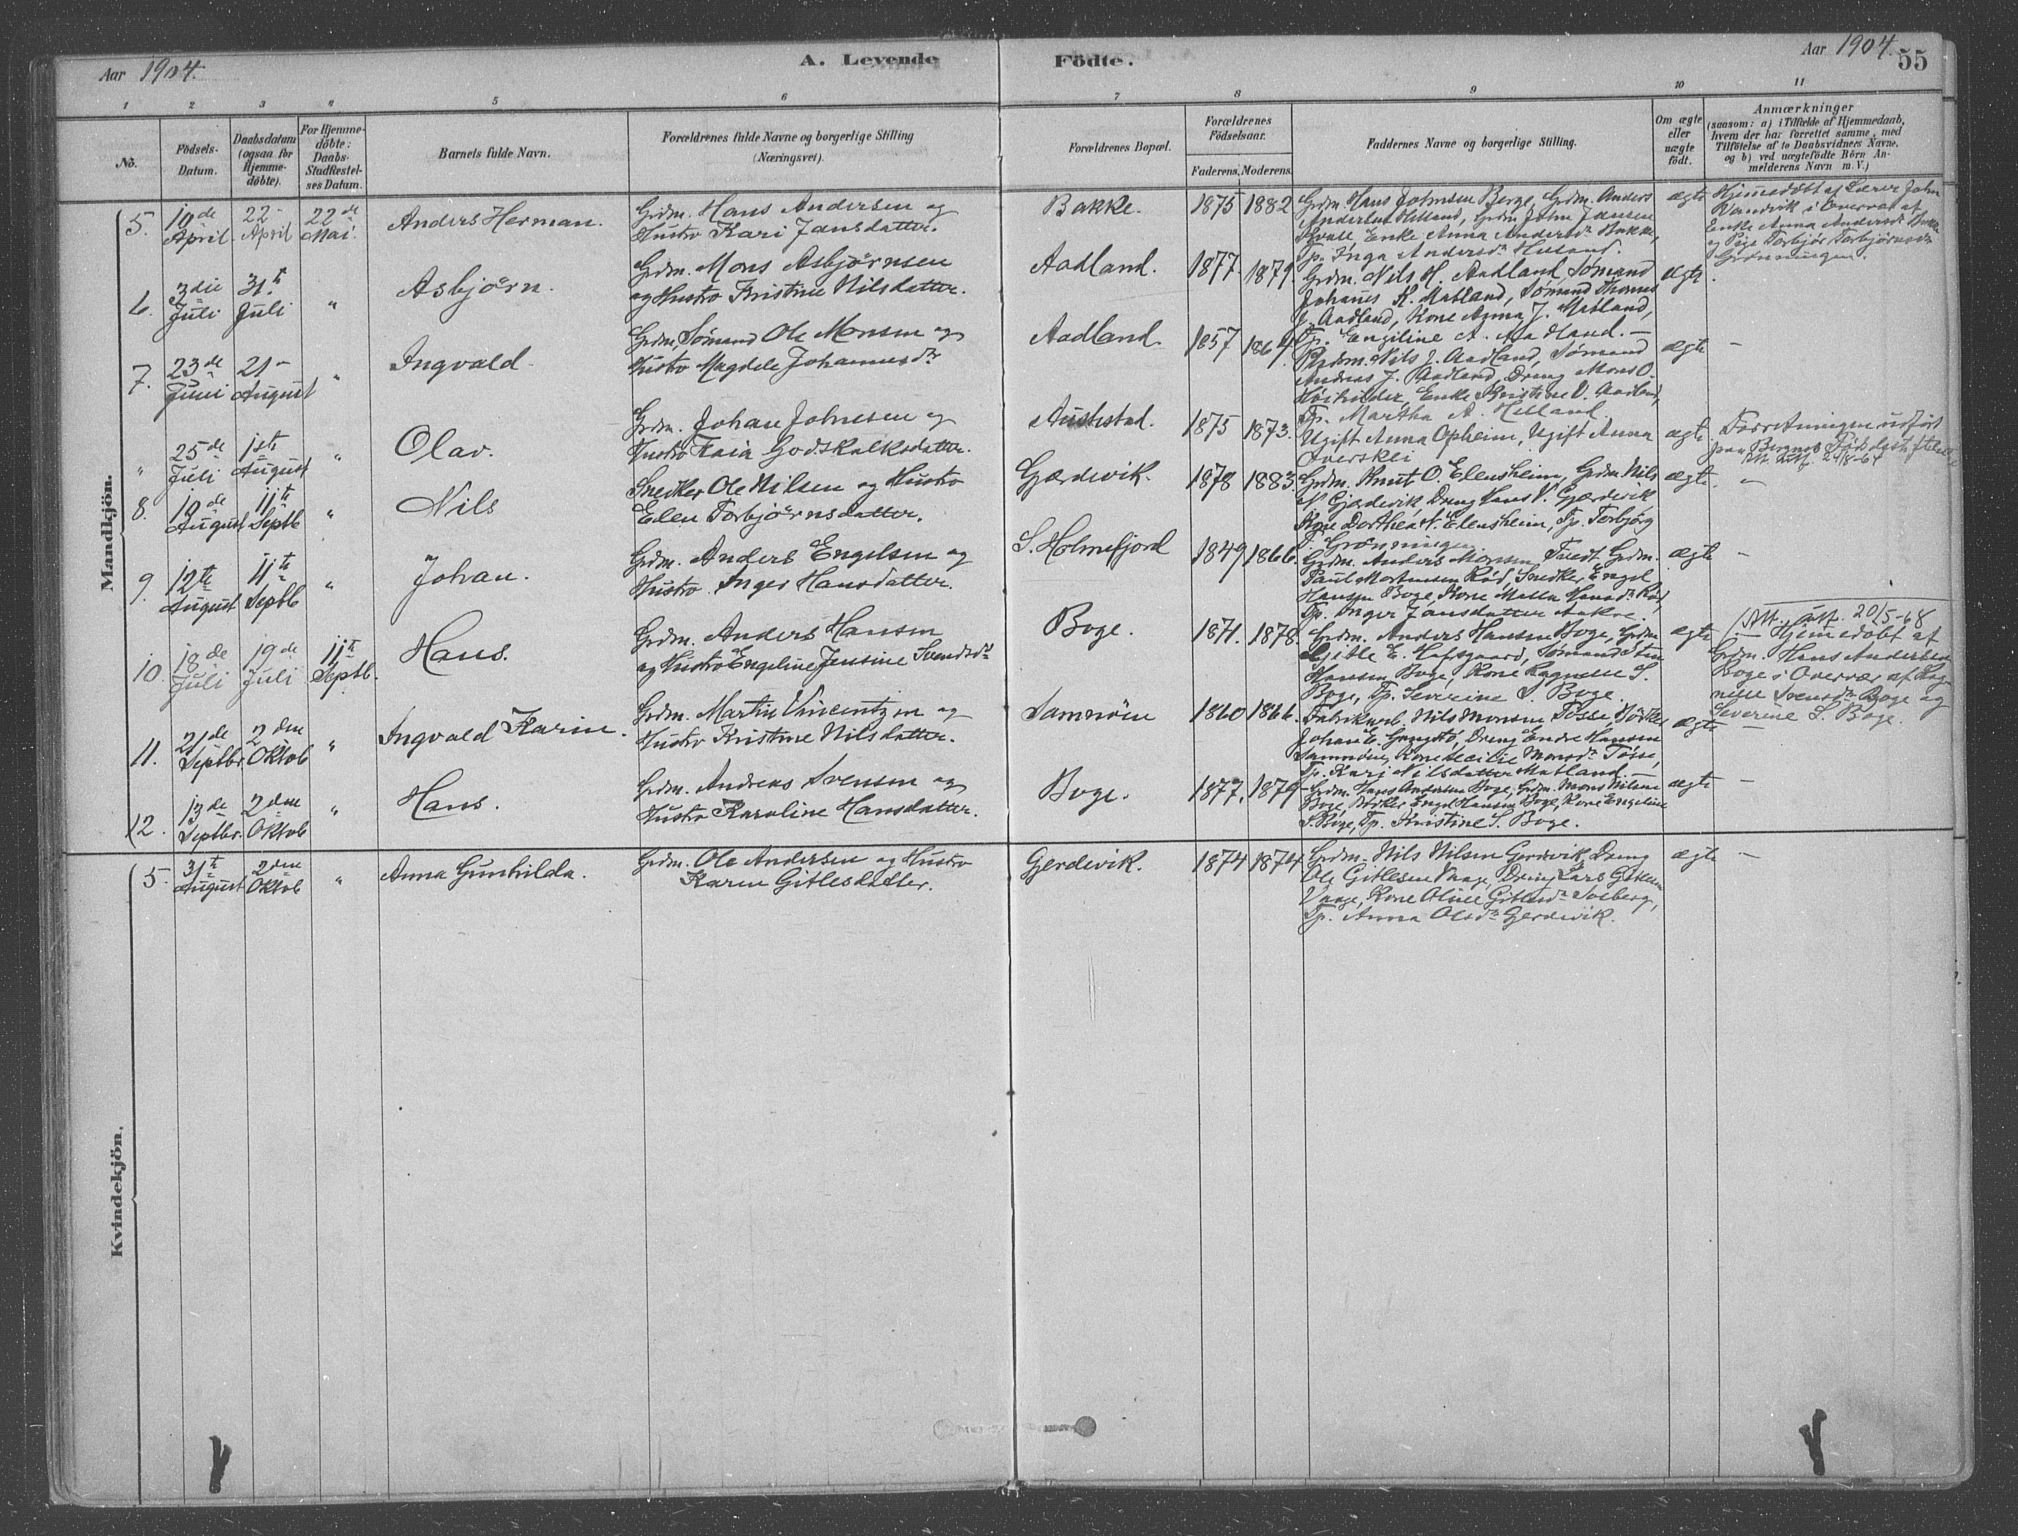 Aar 1904.
A. Levende Födte.
Aar 1904.
55
1 2 3 4 5 6 7 8 9 10 11
No.
Födsels-Datum.
Daabsdatum (ogsaa for Hjemmedöbte).
For Hjemmedöbte: Daabs-Stadfæstelses Datum.
Barnets fulde Navn.
Forældrenes fulde Navne og borgerlige Stilling
(Næringsvei).
Forældrenes Bopæl.
Forældrenes Födselsaar.
Faderens. Moderens.
Faddernes Navne og borgerlige Stilling.
Om ægte eller uægte födt.
Anmærkninger
(saasom: a) i Tilfælde af Hjemmedaab,
hvem der har forrettet samme, med
Tilföielse af to Daabsvidners Navne,
og b) ved uægtefödte Börn An-
melderens Navn m. V.)
Mandkjön.
5. 10de April 22 April 22de Mai. Anders Herman.
Grdm. Hans Andersen og
Hustro Kari Jansdatter.
Bakke. 1875 1882
Grdm. Hans Johnsen Berge, Grdm. Anders
Andersen Helland, Grdm. John Jansen
Enke Anna Andersdr Bakke,
Tp. Inga Andersdr Helland.
ægte
Hjemmedöbt af Lærer John
Vandvik i Overvær af
Enke Anna Andersdr Bakke
og Pige Torbjör Torbjörnsdr
Grönningen.
6. 3die Juli 31te Juli " Asbjörn.
Grdm. Mons Asbjörnsen
og Hustro Kristine Nilsdatter.
Aadland. 1877 1879.
Grdm. Nils H. Aadland, Sømand
Johanes K. Matland, Sømand Thomas
J. Aadland, Kone Anna J. Matland,
Tp. Engiline A. Aadland.
ægte
7. 23de Juni 21 August " Ingvald.
Grdm. Sømand Ole Monsen og
Hustro Magdele Johannesdr
Aadland. 1857 1864.
Grdm. Nils J. Aadland, Sømand
Andreas J. Aadland, Dreng Mons O.
Enke Kristine O. Aadland,
Tp. Martha A. Helland.
ægte –
" 25de Juli 1ste August " Olav.
Grdm. Johan Johnsen og
Hustro Kaia Godskalksdatter.
1875 1873.
Ugift Anna Opheim, Ugift Anna
Overskei
ægte
Forretningen udført
paa Bergens
24/8-64
8. 19de August 11te Septb " Nils
Snedker Ole Nilsen og Hustro
Elen Torbjörnsdatter.
Gjærdevik. 1878 1883
Grdm. Knut O. Elensheim, Grdm. Nils
N. Gjærdevik, Dreng Hans N. Gjærdevik
Kone Dorthea N. Elensheim, Tp. Torbjørg
T. Grønningen
ægte "
9. 12te August 11te Septb " Johan.
Grdm. Anders Engelsen og
Hustro Inger Hansdatter.
S. Holmefjord 1849 1866.
Grdm. Anders Monsen Grdm.
Paul Mortensen Röd, Snedker Engel
Hansen Boge, Kone Malla Hansdr Röd,
Tp. Inger Jansdatter Aakre.
ægte –
10. 18de Juli 19de Juli 11te Septb. Hans.
Grdm. Anders Hansen
og Hustro Engeline Jensine Svendsdr
Boge. 1871. 1878.
Grdm. Anders Hansen Boge, Grdm
Gjitle E. Hafsgaard, Sømand Sten
Hansen Boge, Kone Ragnele S.
Boge, Tp. Severine S. Boge.
ægte
Att. utst. 20/5-68
Hjemmedöbt af
Grdm. Hans Andersen
Boge i Overvær af Rag-
nele Svensdr Boge og
Severine S. Boge.
11. 21de Septbr 2den Oktob " Ingvald Karin.
Grdm. Martin Vincentzen og
Hustro Kristine Nilsdatter.
Samnöen 1860 1866.
Fabrikarb. Nils Monsen Tösse, Bödker
Johan E. Dreng Endre Hansen
Samnöen, Kone Cecilie Monsdr Tösse,
Tp. Kari Nilsdatter Matland.
ægte –
12. 13de Septbr. 2den Oktob " Hans.
Grdm. Andreas Svensen og
Hustro Karoline Hansdatter.
Boge. 1877. 1879
Grdm. Hans Andersen Boge, Grdm. Mons Nilsen
Boge, Bödker Engel Hansen Boge, Kone Engeline
S. Boge, Tp. Kristine S. Boge.
ægte –
Kvindekjön.
5. 31te August 2den Oktob " Anna Gunhilda.
Grdm. Ole Andersen og Hustro
Karen Gitlesdatter.
Gerdevik. 1874 1874
Grdm. Nils Nilsen Gerdevik, Dreng
Ole Gitlesen Vaage, Dreng Lars Gitlesen
Vaage, Kone Oline Gitlesdr Solberg,
Tp. Anna Olsdr Gerdevik.
ægte –